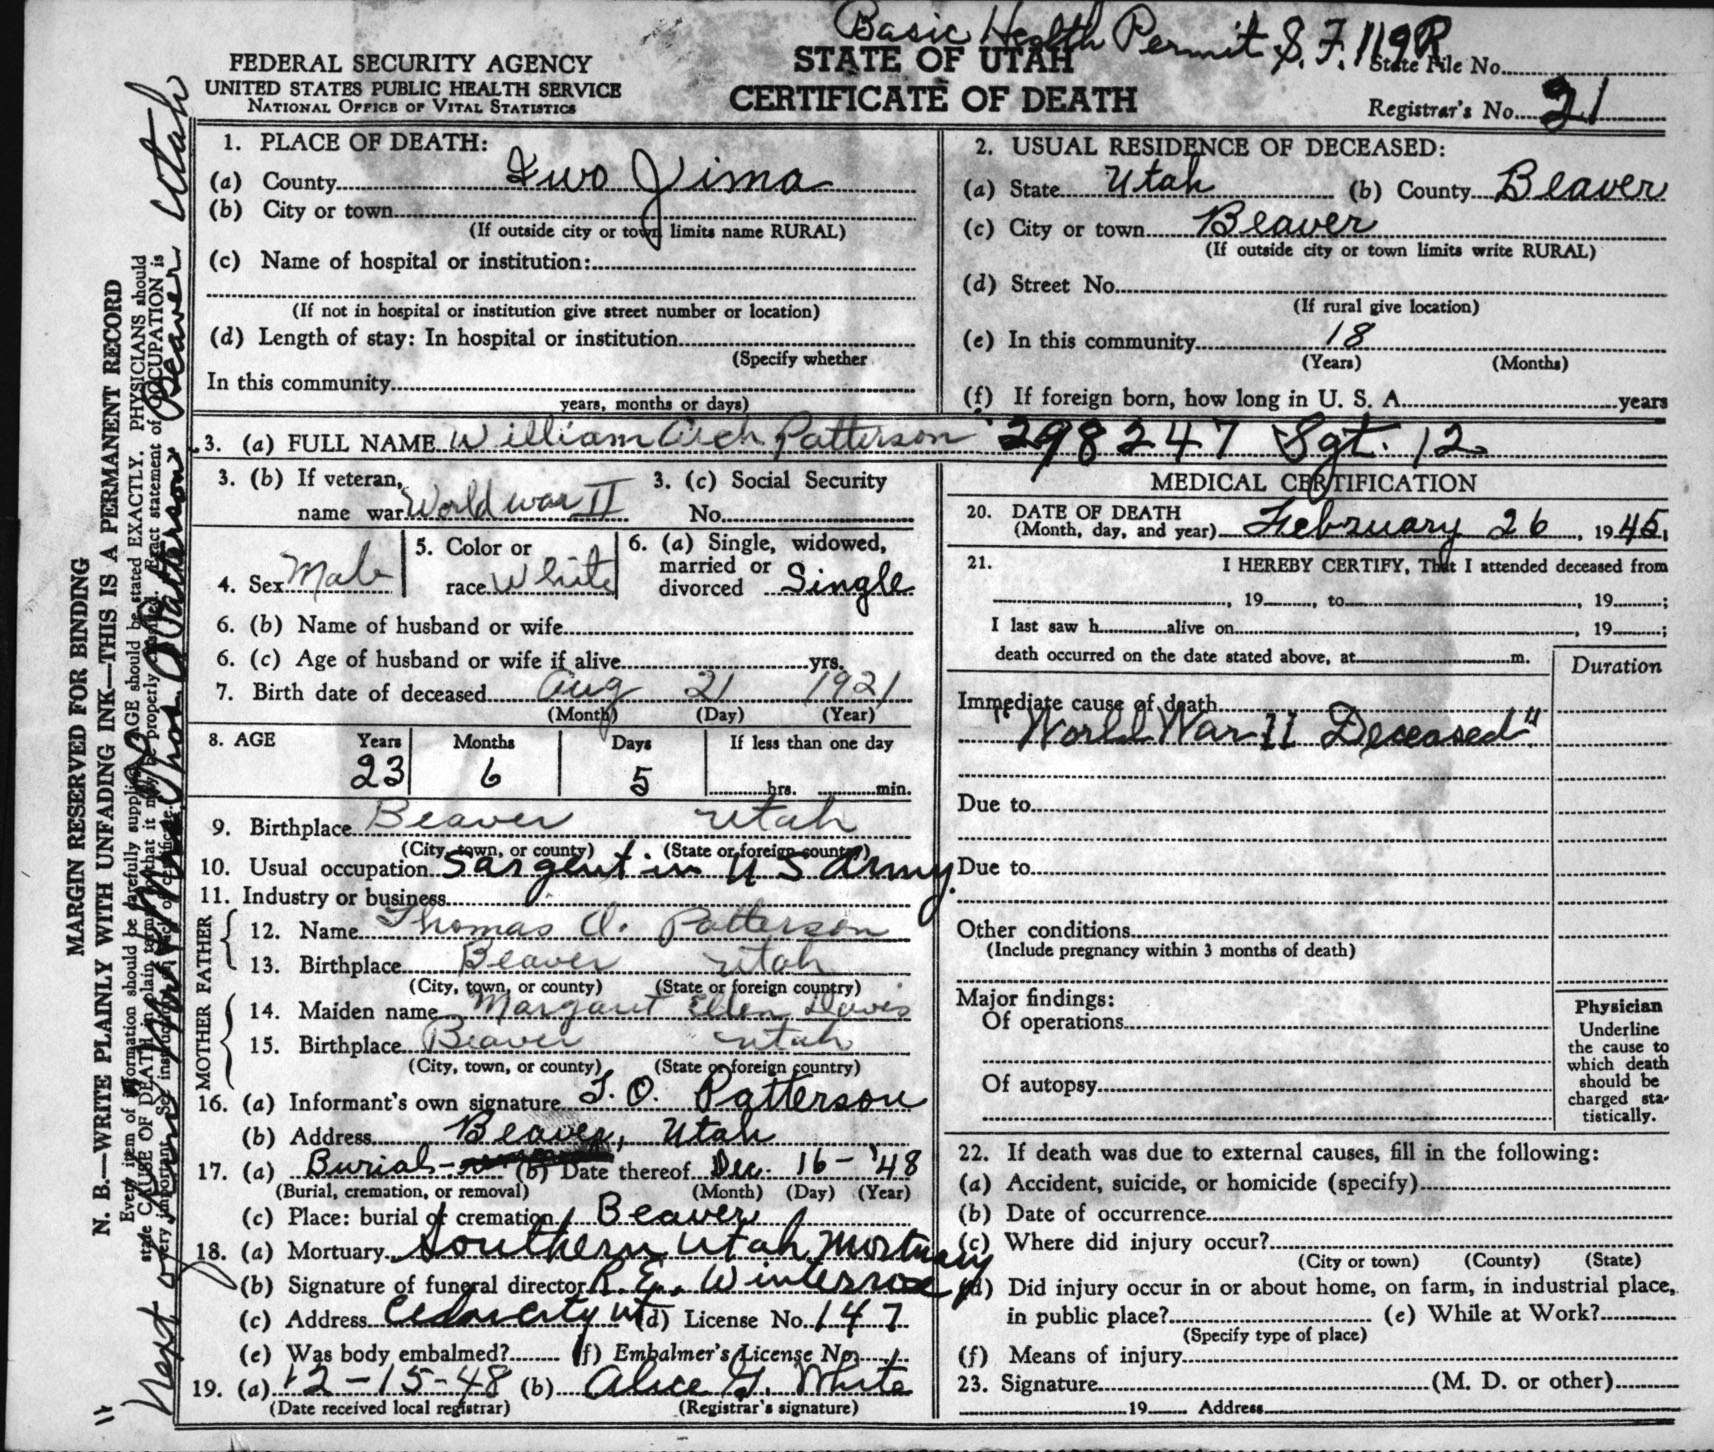 Basic Health Permit S.F. 119R
FEDERAL SECURITY AGENCY
UNITED STATES PUBLIC HEALTH SERVICE
NATIONAL OFFICE OF VITAL STATISTICS
STATE OF UTAH
CERTIFICATE OF DEATH
State File No.
Registrar's No. 21
1. PLACE OF DEATH:
(a) County Iwo Jima
(b) City or town
(If outside city or town limits name RURAL)
(c) Name of hospital or institution:
(If not in hospital or institution give street number or location)
(d) Length of stay: In hospital or institution
(Specify whether
In this community
years, months or days)
2. USUAL RESIDENCE OF DECEASED:
(a) State Utah (b) County Beaver
(c) City or town Beaver
(If outside city or town limits write RURAL)
(d) Street No.
(If rural give location)
(e) In this community 18
(Years) (Months)
(f) If foreign born, how long in U. S. A. years
3. (a) FULL NAME William Arch Patterson 298247 Sgt. 12
3. (b) If veteran, name war World war II
3. (c) Social Security No.
4. Sex Male
5. Color or race White
6. (a) Single, widowed, married or divorced Single
6. (b) Name of husband or wife
6. (c) Age of husband or wife if alive yrs.
7. Birth date of deceased Aug 21 1921
(Month) (Day) (Year)
8. AGE Years Months Days If less than one day
23 6 5 hrs. min.
9. Birthplace Beaver Utah
(City, town, or county) (State or foreign country)
10. Usual occupation Sargent in U S Army
11. Industry or business
FATHER
12. Name Thomas O. Patterson
13. Birthplace Beaver Utah
(City, town, or county) (State or foreign country)
MOTHER
14. Maiden name Margaret Ellen Davis
15. Birthplace Beaver Utah
(City, town, or county) (State or foreign country)
16. (a) Informant's own signature T. O. Patterson
(b) Address Beaver, Utah
17. (a) Burial- (b) Date thereof Dec. 16 - '48
(Burial, cremation, or removal) (Month) (Day) (Year)
(c) Place: burial or cremation Beaver
18. (a) Mortuary Southern Utah Mortuary
(b) Signature of funeral director R. E. Winterrose
(c) Address Cedar city Ut (d) License No. 147
(e) Was body embalmed? (f) Embalmer's License No.
19. (a) 12-15-48 (b) Alice G. White
(Date received local registrar) (Registrar's signature)
MEDICAL CERTIFICATION
20. DATE OF DEATH
(Month, day, and year) February 26, 1945,
21. I HEREBY CERTIFY, That I attended deceased from
, 19 , to , 19 ;
I last saw h alive on , 19 ;
death occurred on the date stated above, at m.
Duration
Immediate cause of death
"World War II Deceased"
Due to
Due to
Other conditions
(Include pregnancy within 3 months of death)
Major findings:
Of operations
Of autopsy
Physician
Underline
the cause to
which death
should be
charged sta-
tistically.
22. If death was due to external causes, fill in the following:
(a) Accident, suicide, or homicide (specify)
(b) Date of occurrence
(c) Where did injury occur?
(City or town) (County) (State)
(d) Did injury occur in or about home, on farm, in industrial place,
in public place? (e) While at Work?
(Specify type of place)
(f) Means of injury
23. Signature (M. D. or other)
19 Address
MARGIN RESERVED FOR BINDING
N. B.—WRITE PLAINLY WITH UNFADING INK—THIS IS A PERMANENT RECORD
Every item of information should be carefully supplied. AGE should be stated EXACTLY. PHYSICIANS should
state CAUSE OF DEATH in plain terms, so that it may be properly classified. Exact statement of OCCUPATION is
very important.
Next of Thos O Patterson Beaver Utah